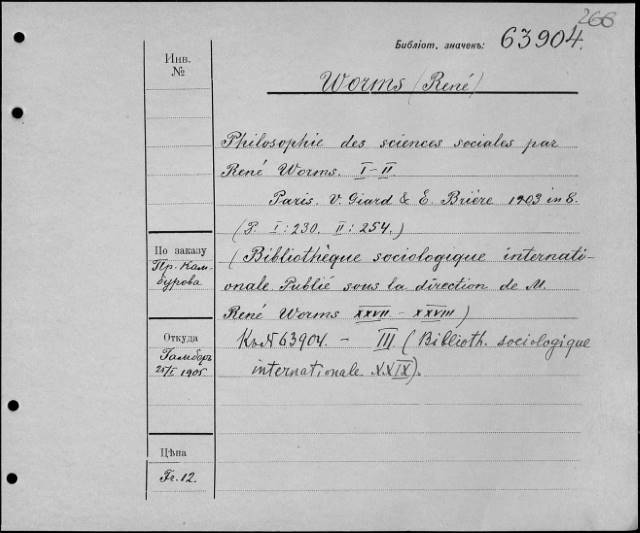 266
Библіот. значекъ: 63904.
Инв.
№
Worms (René)
Philosophie des sciences sociales par
René Worms. I-II
Paris. V. Giard & E. Brière 1903 in 8.
(P. I: 230. II: 254.)
По заказу
Пр. Кам-
бурова
(Bibliothèque sociologique internati-
onale Publié sous la direction de M.
René Worms XXVII - XXVIII)
Откуда
Гамберъ
25/I 1905
Къ № 63904. - III (Biblioth. sociologique
internationale XXIX).
Цѣна
Fr. 12.